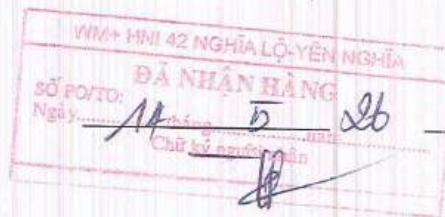 WM+ HNI 42 NGHĨA LỘ-YÊN NGHĨA
ĐÃ NHẬN HÀNG
SỐ PO/TO:
Ngày 11 tháng 5 năm 26
Chữ ký người nhận